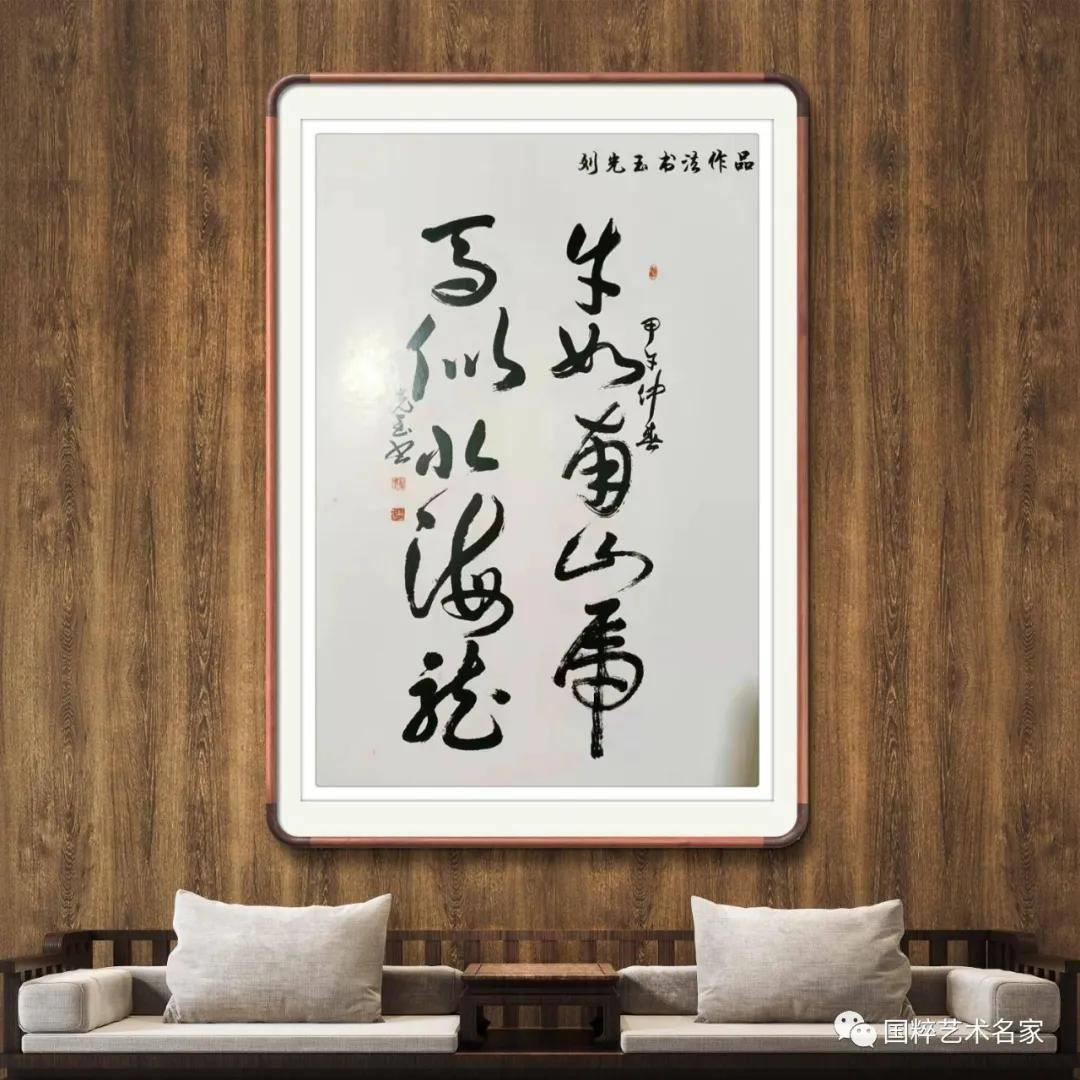 刘先玉书法作品
甲午仲春
牛如南山虎
马似北海龙
先玉书
国粹艺术名家